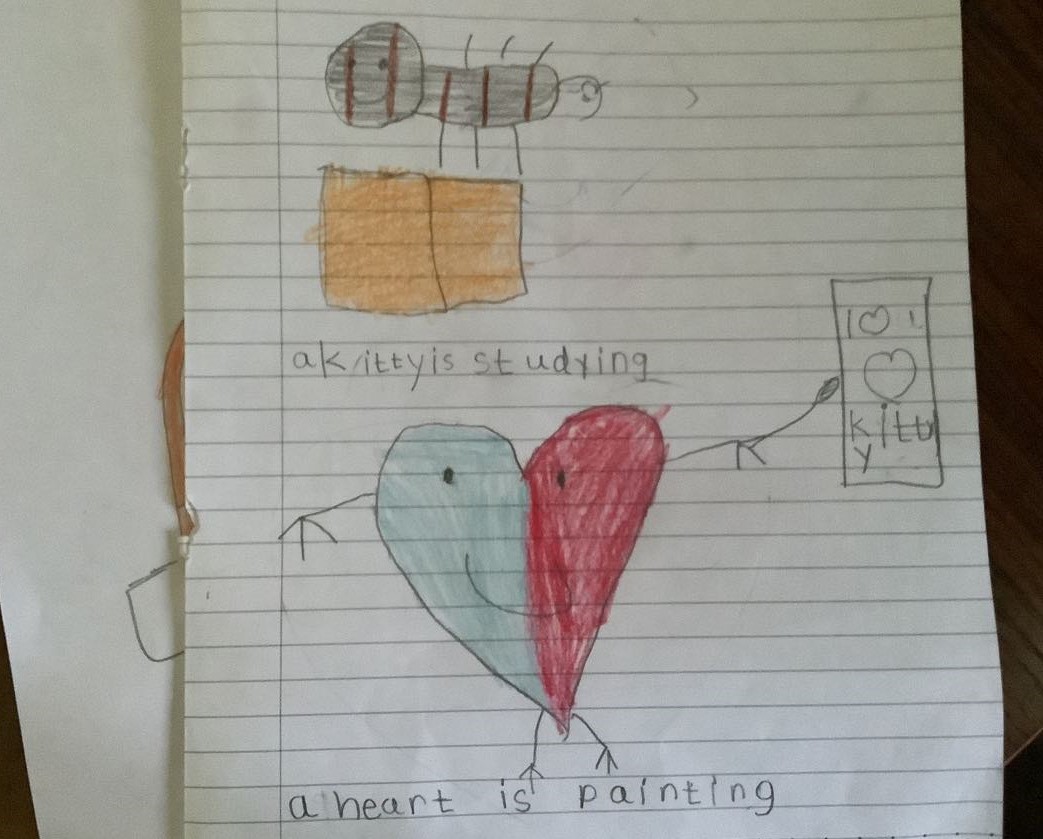 a kitty is studying
I ♡ I
♡
kitt
y
a heart is painting